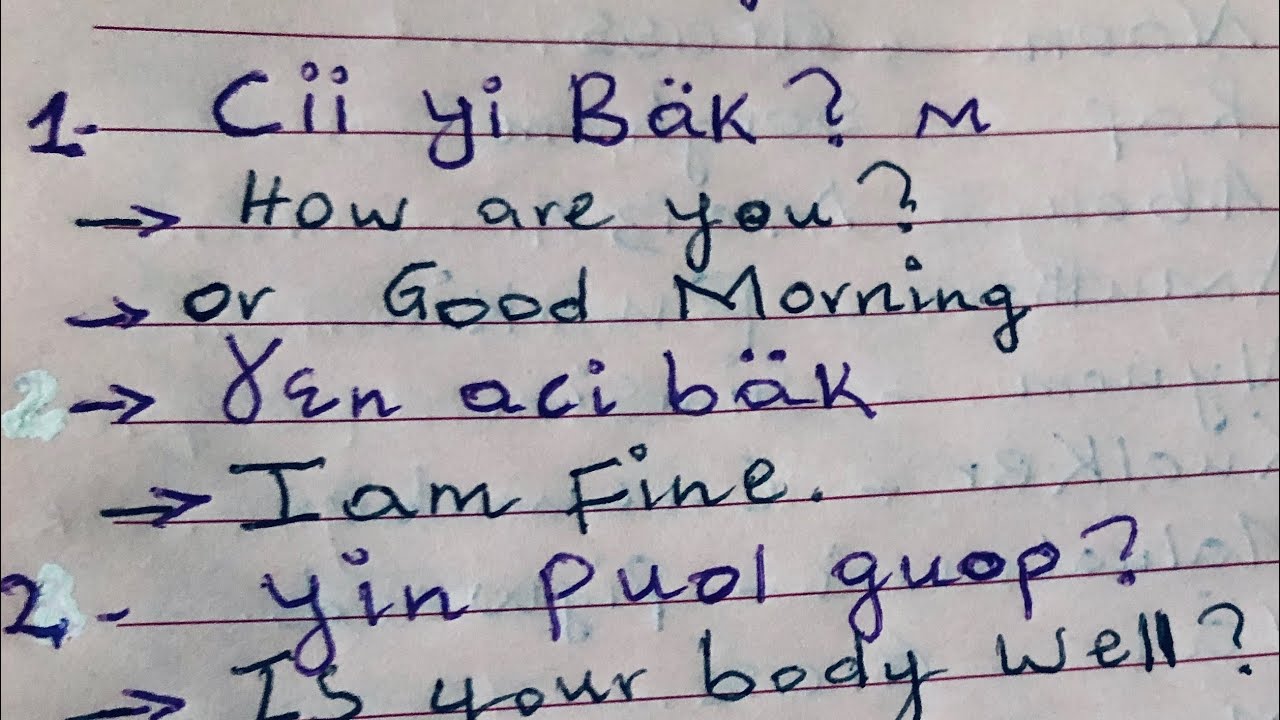 1- Cii yi Bäk? M
→ How are you?
→ or Good Morning
2 → Ɣɛn aci bäk
→ I am Fine.
2- yin puol guop?
→ Is your body well?